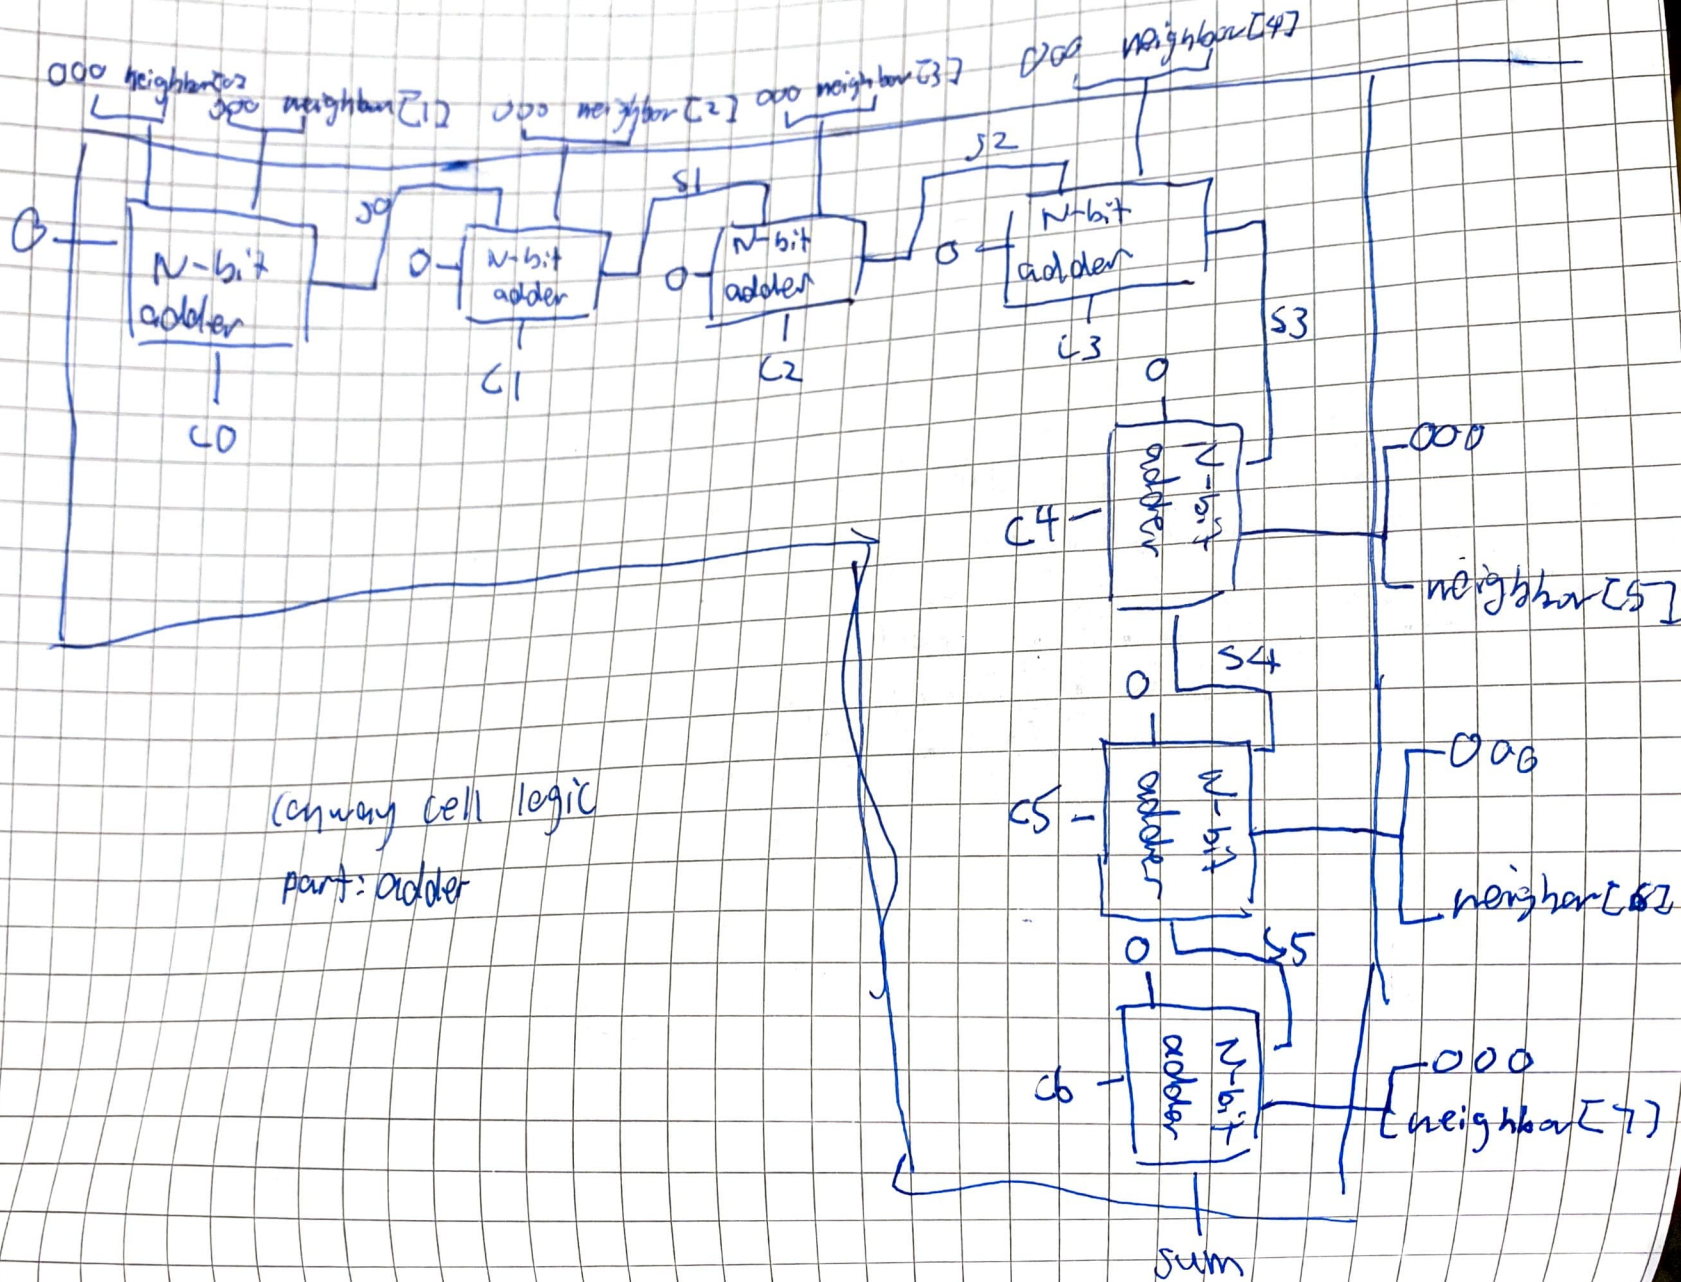 000 neighbor[0]
000 neighbor[1]
000 neighbor[2]
000 neighbor[3]
000 neighbor[4]
0
N-bit
adder
C0
S0
0
N-bit
adder
C1
S1
0
N-bit
adder
C2
S2
0
N-bit
adder
C3
S3
0
N-bit
adder
C4
000
neighbor[5]
S4
0
N-bit
adder
C5
000
neighbor[6]
S5
0
N-bit
adder
C6
000
neighbor[7]
sum
Conway cell logic
part: adder